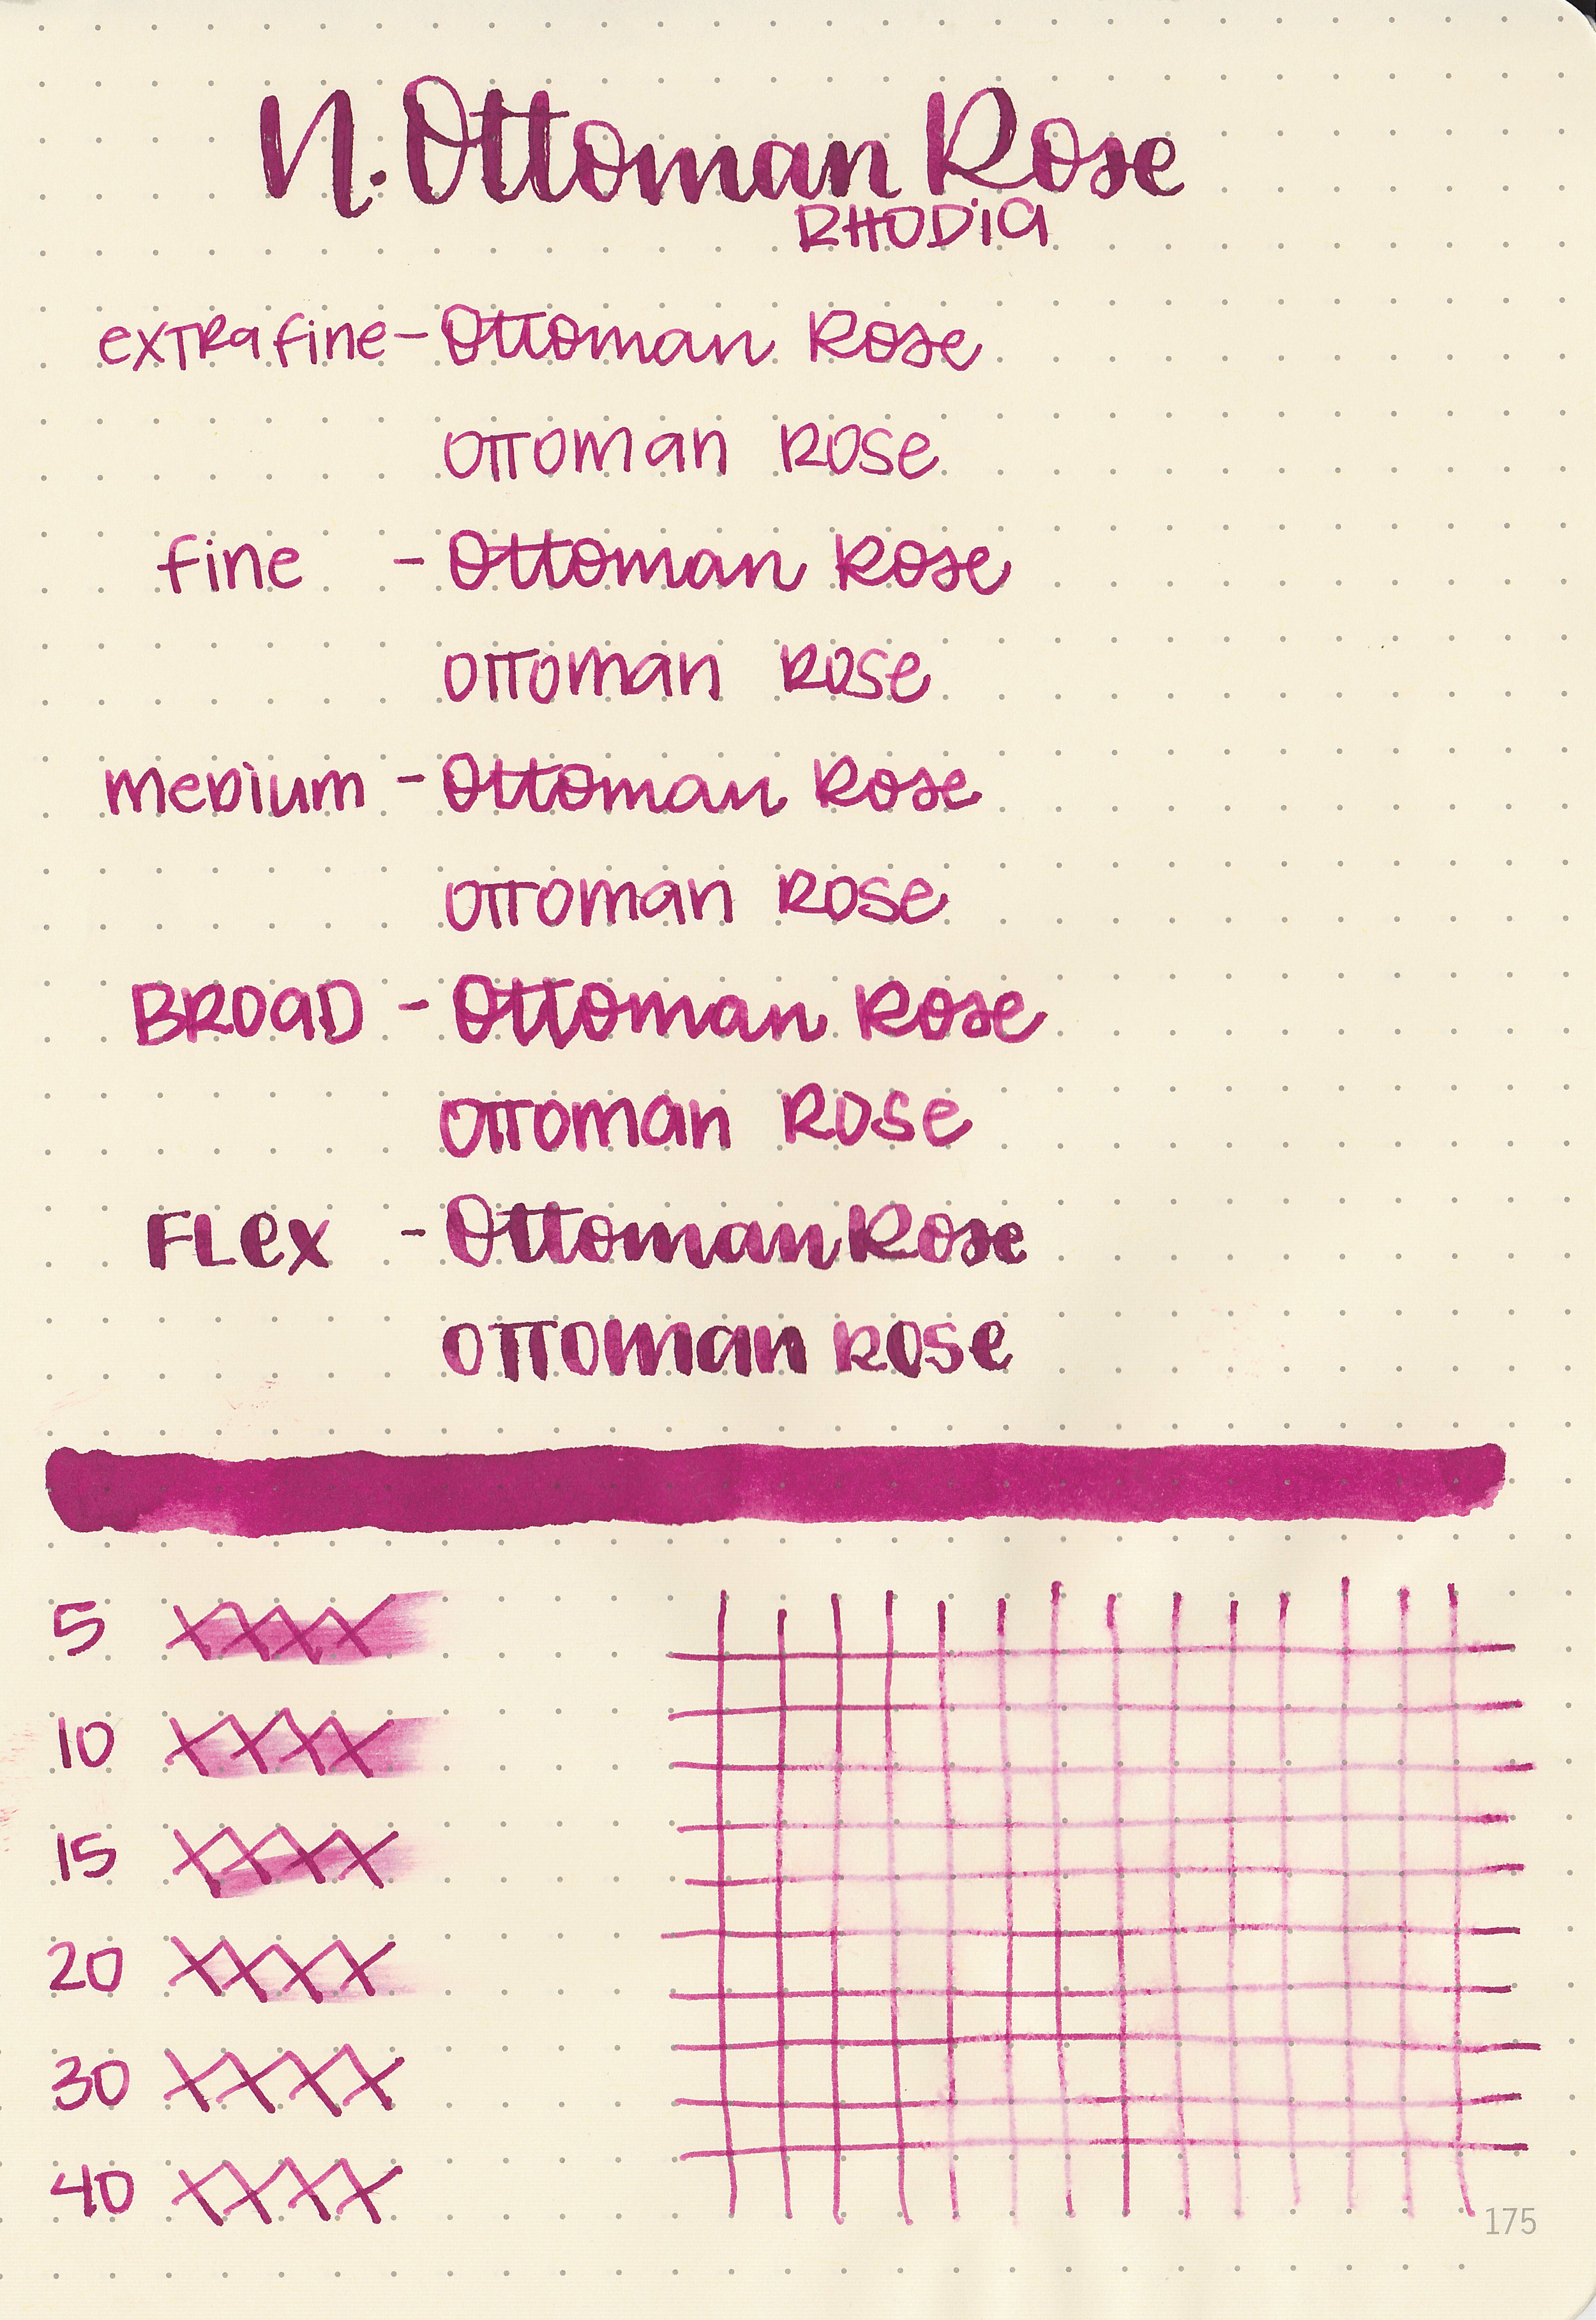 N. Ottoman Rose
RHODIA
extra fine - Ottoman Rose
Ottoman Rose
fine - Ottoman Rose
Ottoman Rose
medium - Ottoman Rose
Ottoman Rose
BROAD - Ottoman Rose
Ottoman Rose
FLex - Ottoman Rose
Ottoman Rose
5
10
15
20
30
40
175